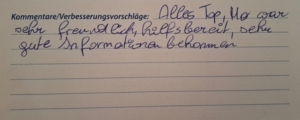 Kommentare/Verbesserungsvorschläge: Alles Top, Ma war
sehr freundlich, hilfsbereit, sehr
gute Informationen bekommen